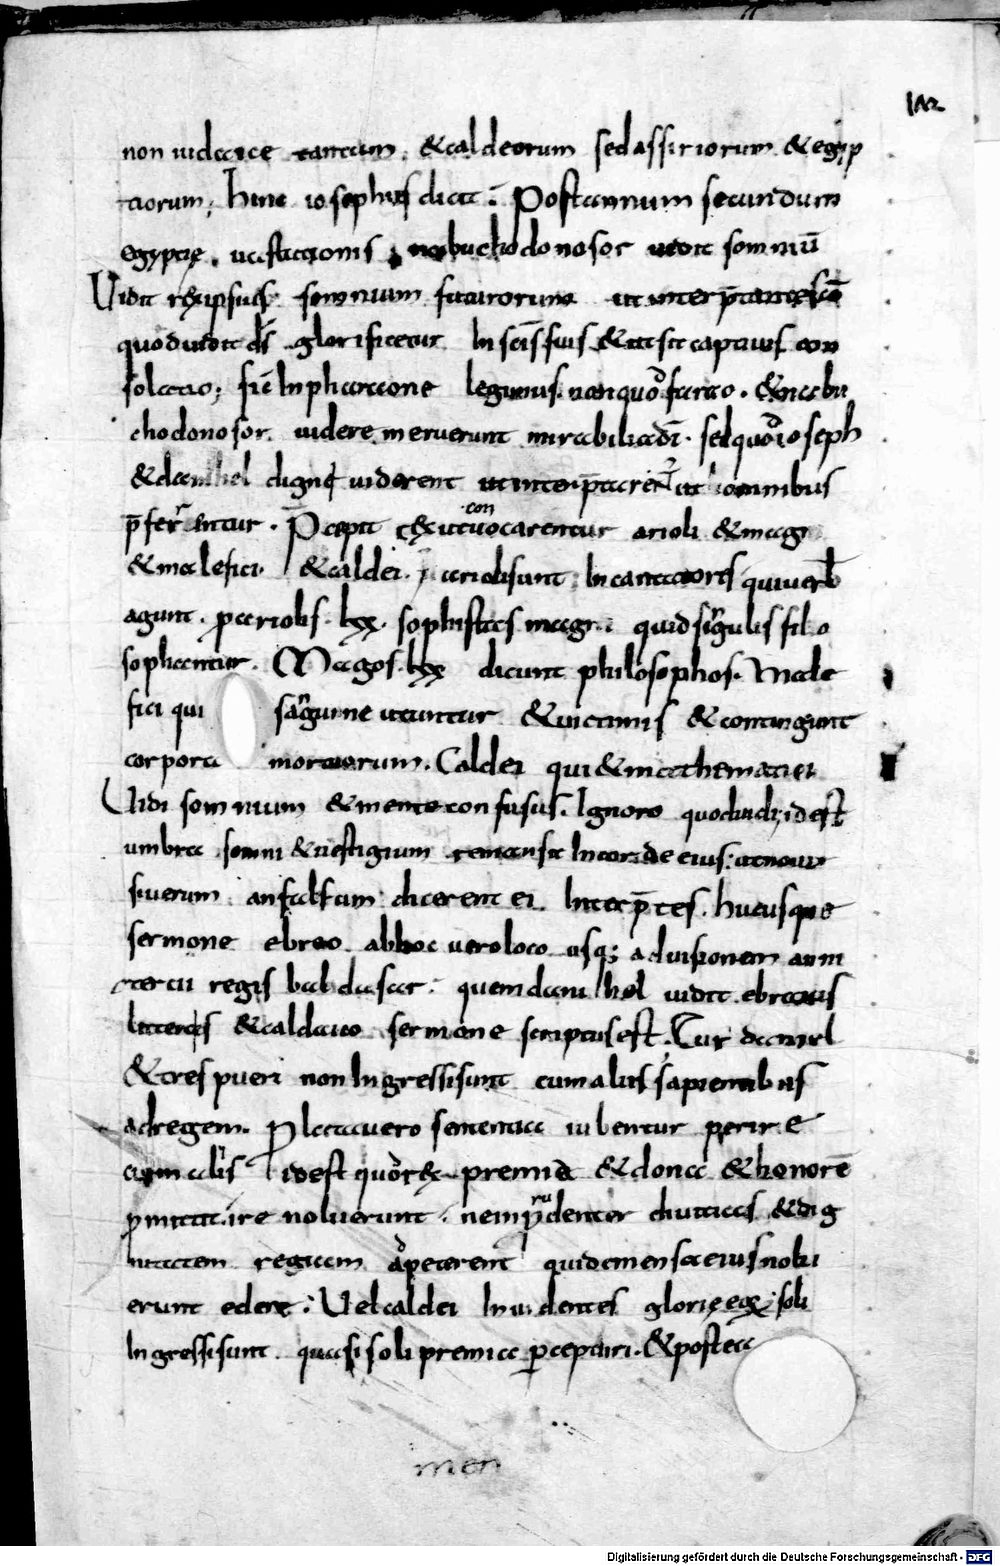 142
non iudeae tantum. & caldeorum sed assiriorum & egyp
tiorum; hinc iosephus dicit; Post annum secundum
egyptię. uastationis; nabuchodonosor uidit somniū
Uidit rex ipsius somnium futurorum ut interp̄tante sc̄o
quod uidit d̄s glorificetur In sc̄is suis & ut sit captiuis con
solatio; sic̄ In pharaone legimus. non quod farao. & nabu
chodonosor. uidere meruerunt mirabilia dī. sed quod ioseph
& danihel digne uiderent ut interp̄tarent ut omnibus
p̄ferrentur. P̄cepit rex ut conuocarentur arioli & magi
& malefici. & caldei. arioli sunt Incantatores qui uerb̄
agunt. p ariolis. lxx. sophistas magi quid singulis filo
sophantur. Magos. lxx dicunt philosophos. Male
fici qui sanguine utuntur & uictimis & contingunt
corpora mortuorum. Caldei qui & mathematici
Uidi somnium & mente confusus. Ignoro quod uidi; id est
umbra somni & uestigium remansit In corde eius; ut
siuerum an falsum dicerent ei. Interp̄tes. hucusque
sermone ebreo. ab hoc uero loco usq; ad uisionem anni
tertii regis baldasar. quem danihel uidit ebraicis
litteris & caldaico sermone scriptus est. Cur danihel
& tres pueri non Ingressi sunt cum aliis sapientibus
ad regem. Plata uero sententia iubentur perire
cum aliis id est quod rex premia & dona & honorē
p̄mittit. ire noluerunt. ne inprudenter diuitias & dig
nitatem regiam apeterent qui de mensa eius nolu
erunt edere; Uel caldei Inuidentes glorię eoꝝ; soli
Ingressi sunt quasi soli premia p̄cepturi. & postea
men
Digitalisierung gefördert durch die Deutsche Forschungsgemeinschaft - DFG